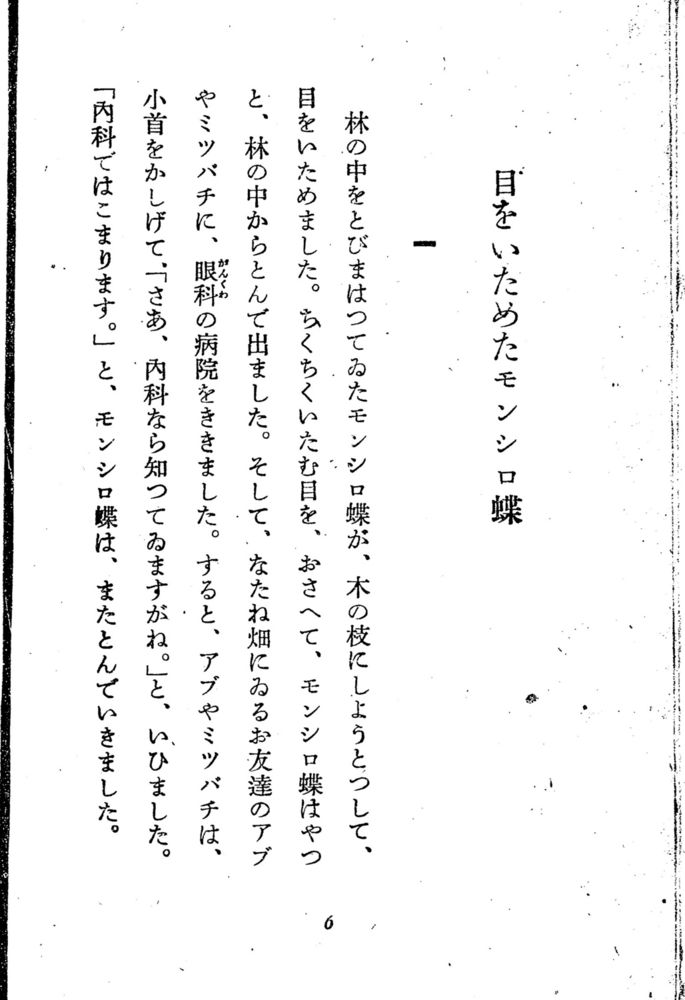 目をいためたモンシロ蝶
一
林の中をとびまはつてゐたモンシロ蝶が、木の枝にしようとつして、
目をいためました。ちくちくいたむ目を、おさへて、モンシロ蝶はやつ
と、林の中からとんで出ました。そして、なたね畑にゐるお友達のアブ
やミツバチに、眼科の病院をききました。すると、アブやミツバチは、
がんくわ
小首をかしげて、「さあ、內科なら知つてゐますがね。」と、いひました。
「內科ではこまります。」と、モンシロ蝶は、またとんでいきました。
6